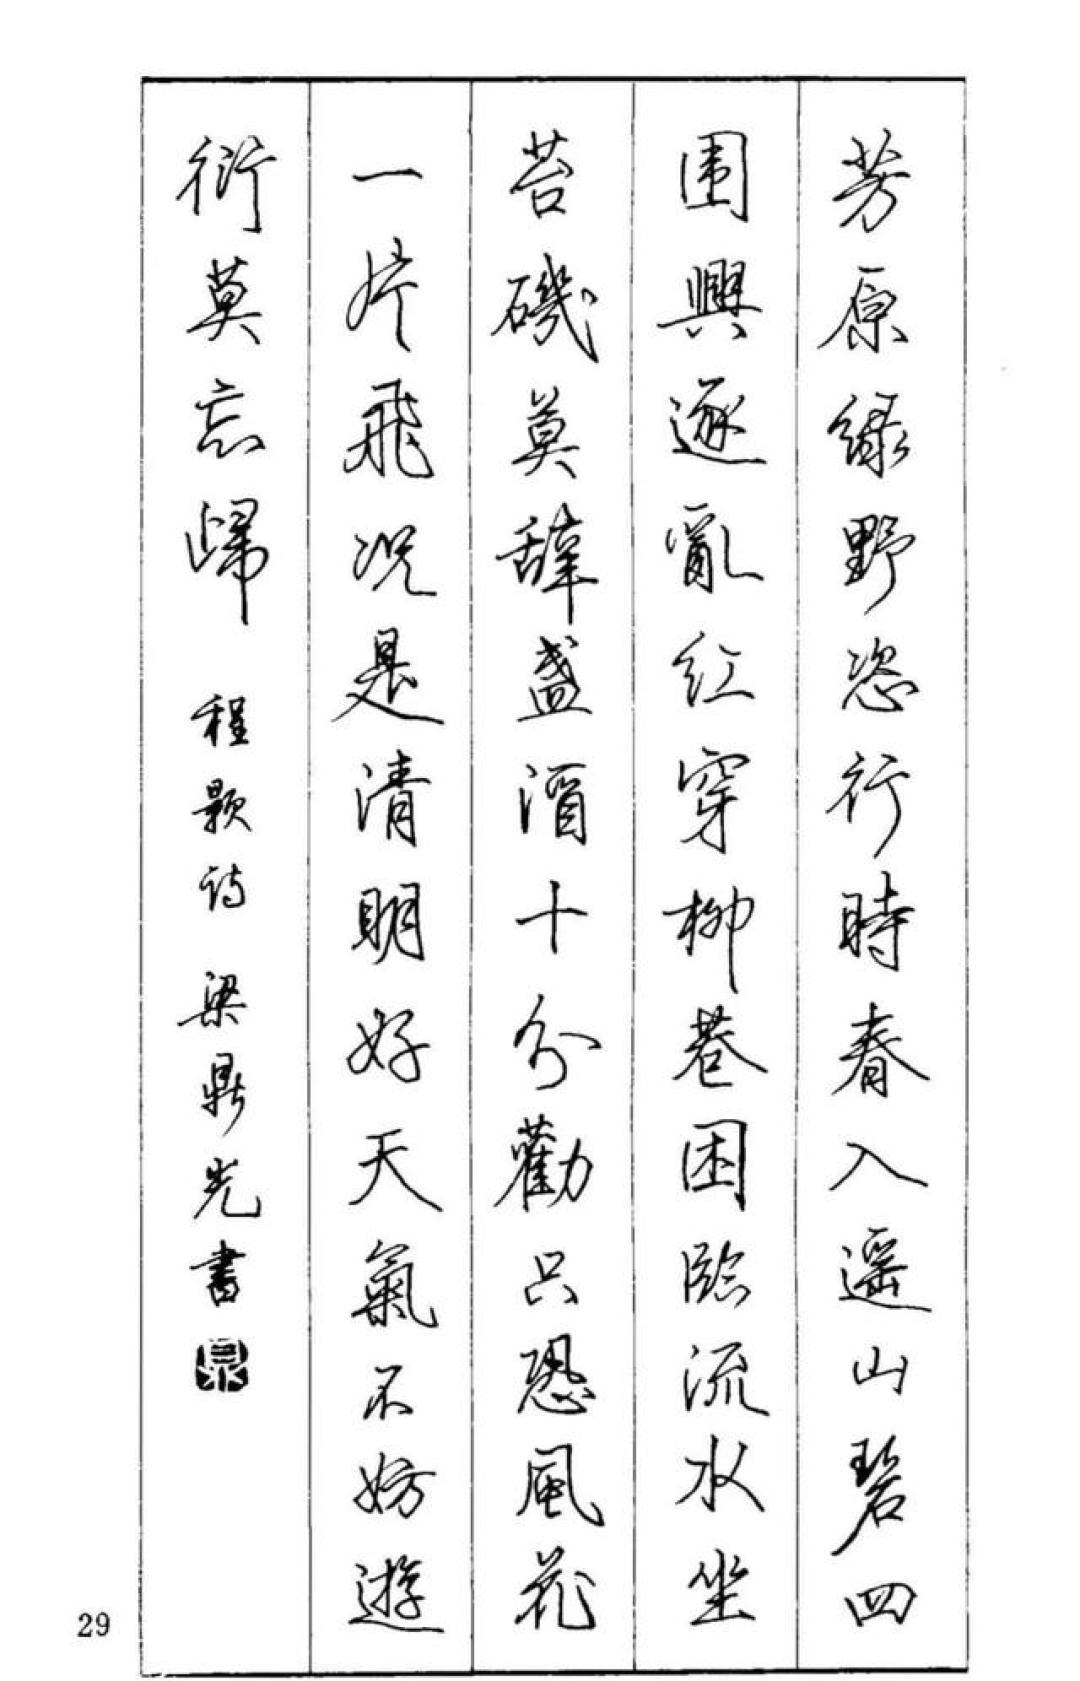 芳原綠野恣行時春入遥山碧四
围興逐亂紅穿柳巷困臨流水坐
苔磯莫辭盞酒十分勸只恐風花
一片飛况是清明好天氣不妨遊
衍莫忘歸 程颢诗 梁鼎光書
29